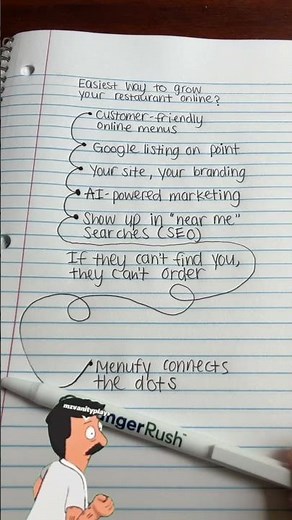 Easiest way to grow
your restaurant online?
• Customer-friendly
online menus
• Google listing on point
• Your site, your branding
• AI-powered marketing
• Show up in "near me"
searches (SEO)
If they can't find you,
they can't order
• Menufy connects
the dots
mzvanityplay
ngerRush